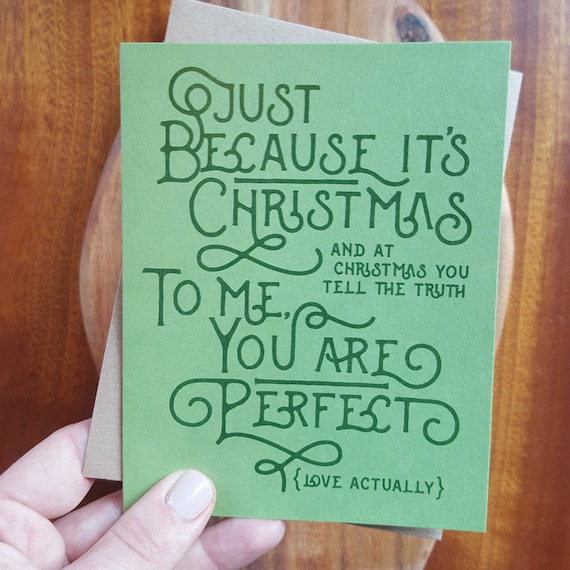 JUST
BECAUSE IT'S
CHRISTMAS
AND AT
CHRISTMAS YOU
TELL THE TRUTH
TO ME,
YOU ARE
PERFECT
{LOVE ACTUALLY}